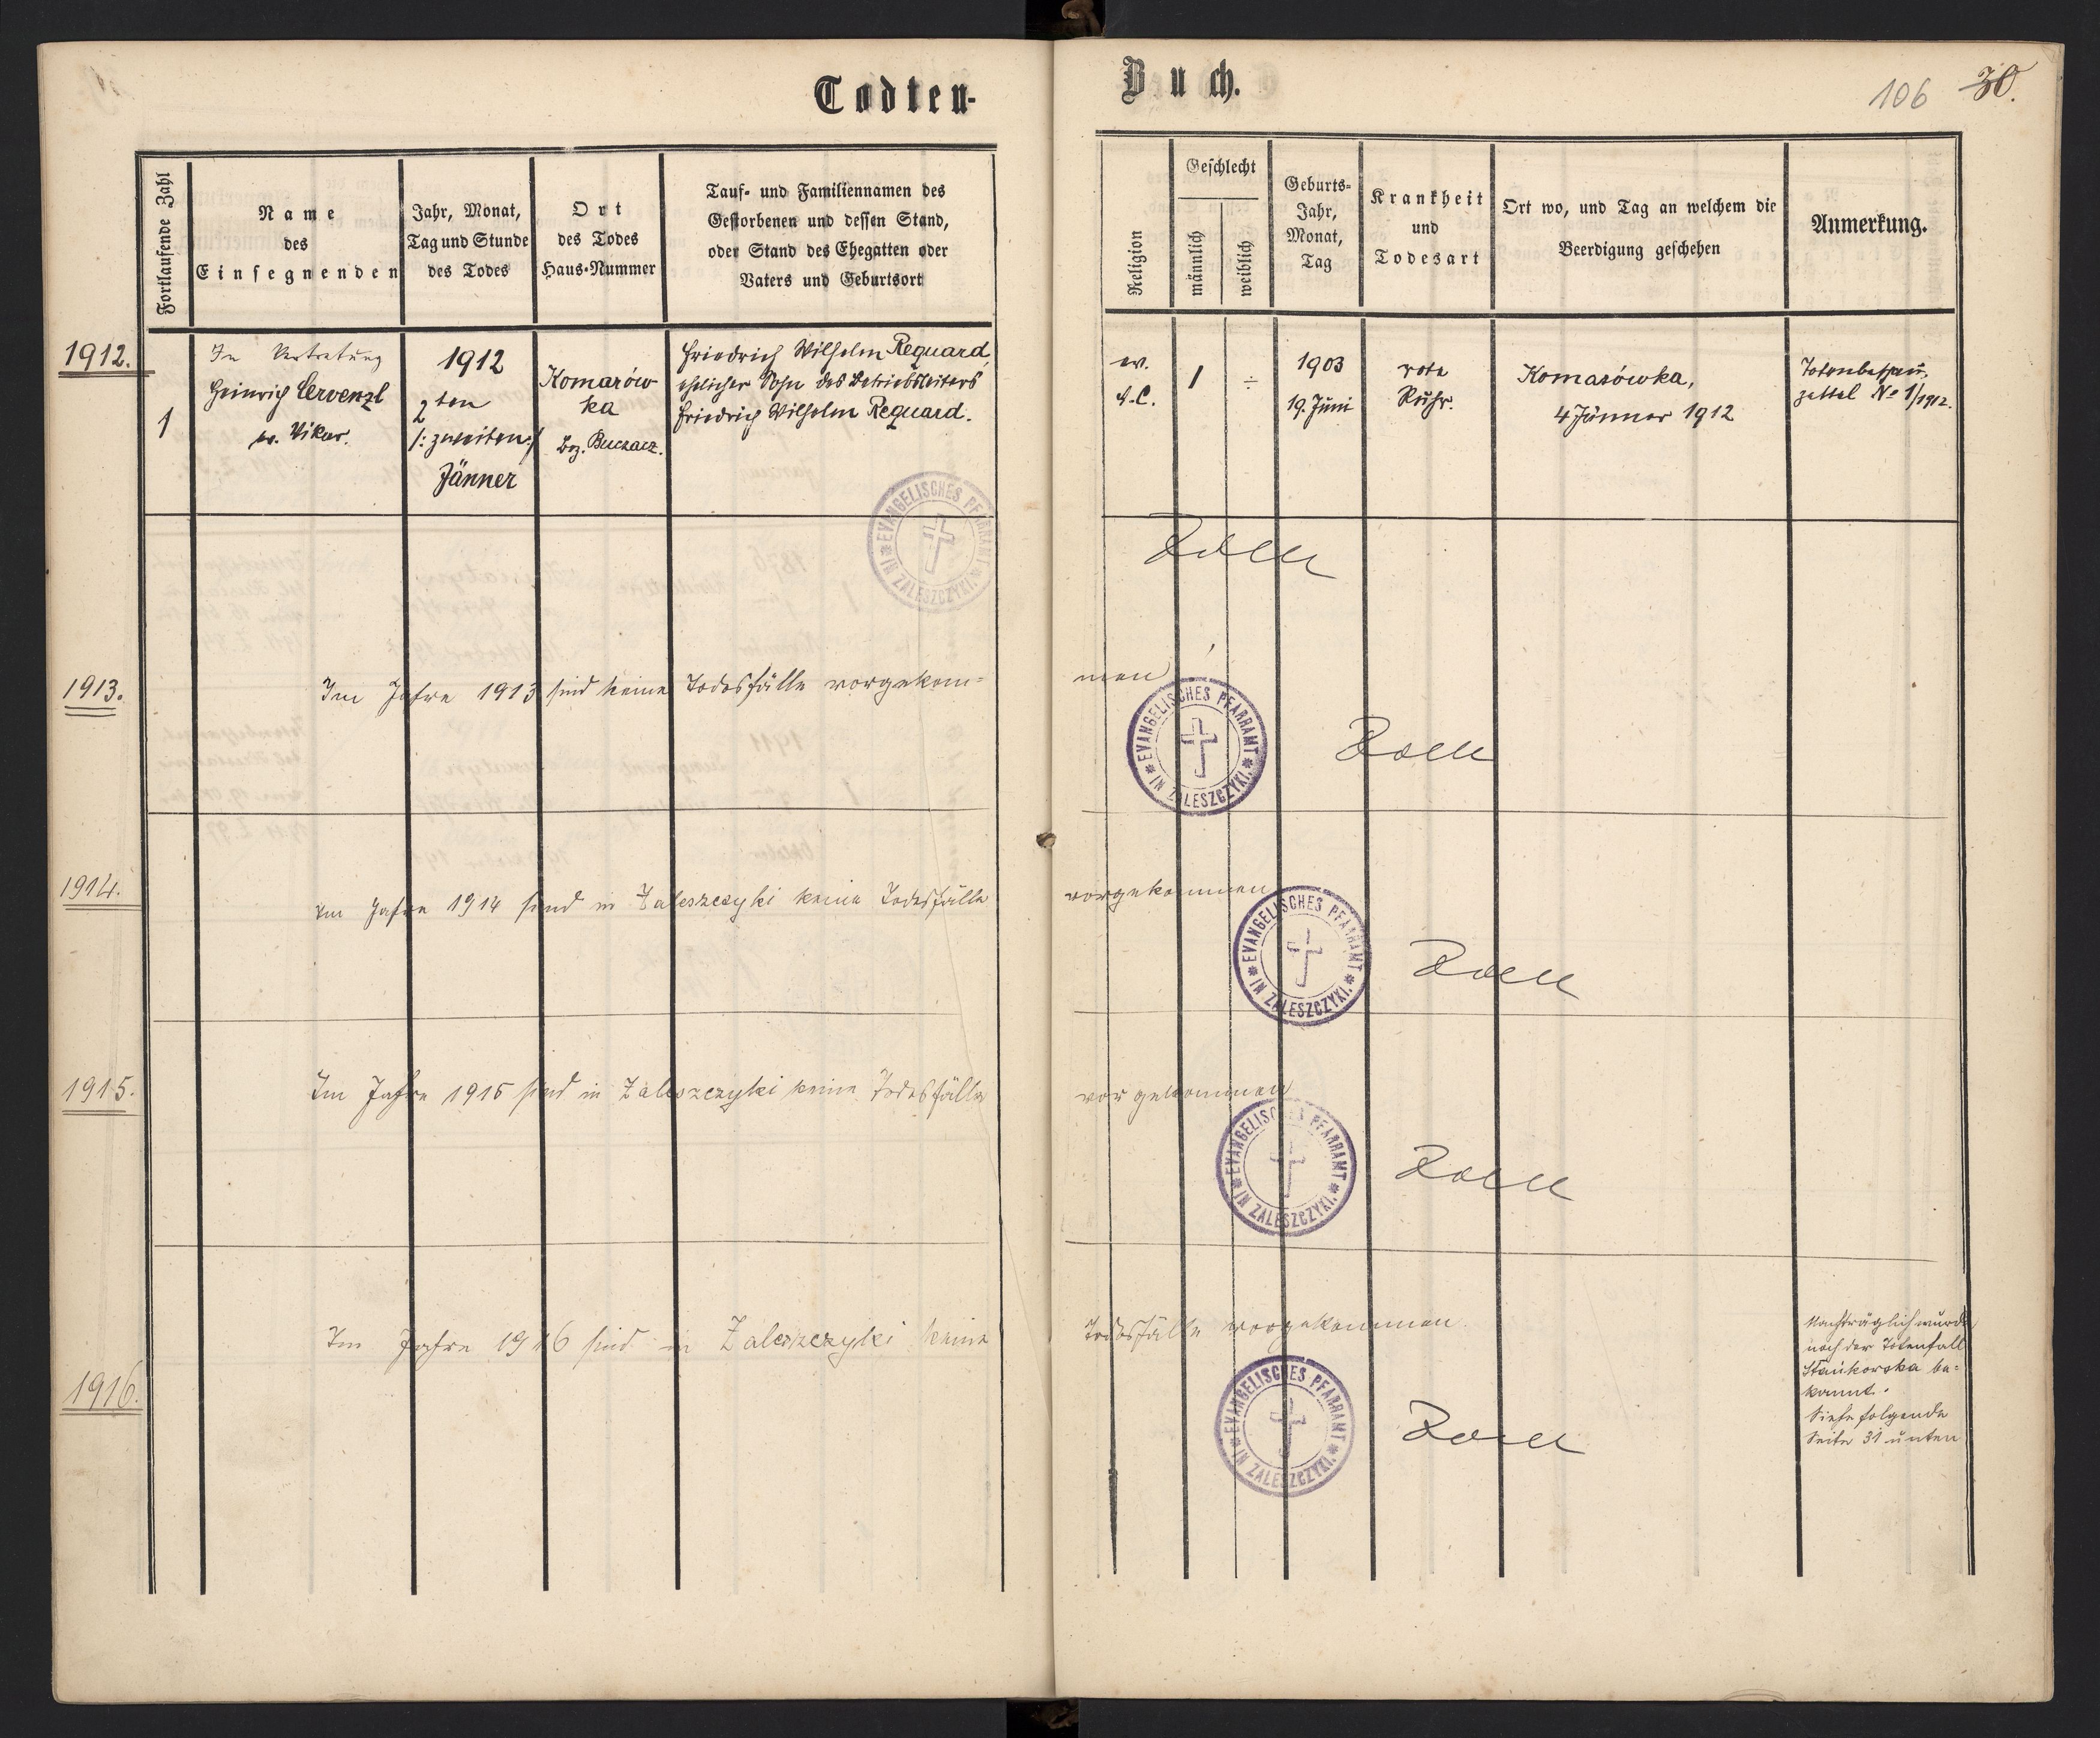 Todten-
Buch.
106 30.
Fortlaufende Zahl
Name
des
Einsegnenden
Jahr, Monat,
Tag und Stunde
des Todes
Ort
des Todes
Haus-Nummer
Tauf- und Familiennamen des
Gestorbenen und dessen Stand,
oder Stand des Ehegatten oder
Vaters und Geburtsort
Religion
Geschlecht
männlich
weiblich
Geburts-
Jahr,
Monat,
Tag
Krankheit
und
Todesart
Ort wo, und Tag an welchem die
Beerdigung geschehen
Anmerkung.
1912.
1
In Vertretung
Heinrich Cervenzl
ev. Vikar.
1912
2ten
/: zweiten :/
Jänner
Komarów
ka
Bez. Buczacz.
Friedrich Wilhelm Requard,
ehelicher Sohn des Betriebsleiters
Friedrich Wilhelm Requard.
ev.
A.C.
1
÷
1903
19. Juni
rote
Ruhr.
Komarówka,
4 Jänner 1912
Totenbeschau-
zettel No 1/1912.
EVANGELISCHES PFARRAMT
IN ZALESZCZYKI.
1913.
Im Jahre 1913 sind keine Todesfälle vorgekom=
men
EVANGELISCHES PFARRAMT
IN ZALESZCZYKI.
1914.
Im Jahre 1914 sind in Zaleszczyki keine Todesfälle
vorgekommen
EVANGELISCHES PFARRAMT
IN ZALESZCZYKI.
1915.
Im Jahre 1915 sind in Zaleszczyki keine Todesfälle
vorgekommen
EVANGELISCHES PFARRAMT
IN ZALESZCZYKI.
1916.
Im Jahre 1916 sind in Zaleszczyki keine
Todesfälle vorgekommen.
EVANGELISCHES PFARRAMT
IN ZALESZCZYKI.
Nachträglich wurde
noch der Totenfall
be=
kannt.
Siehe folgende
Seite 31 unten